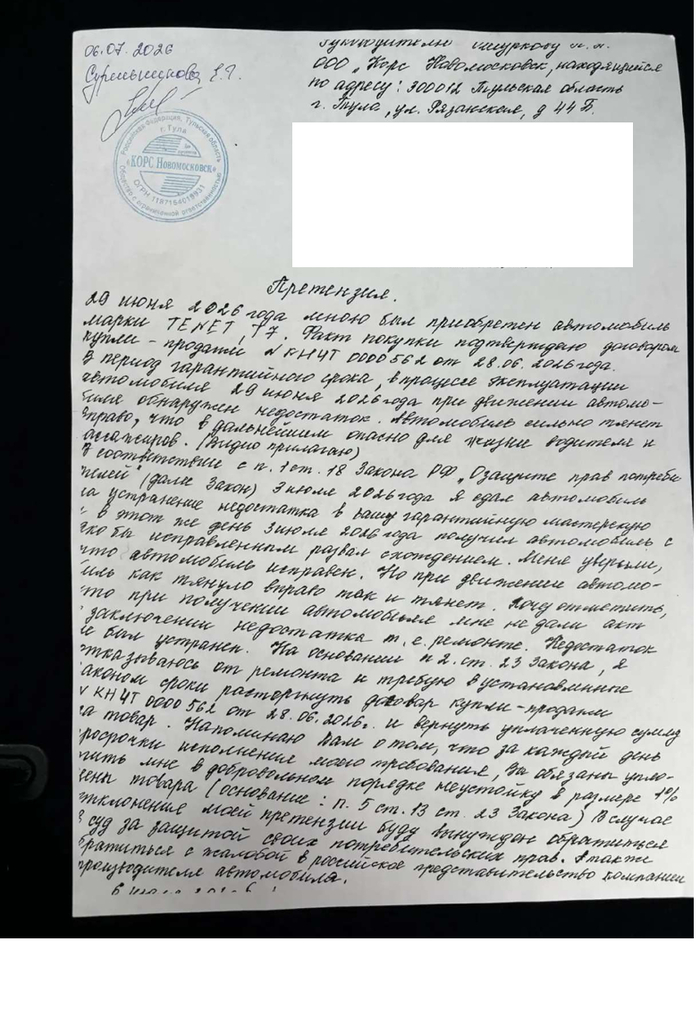 06.07.2026
ООО „Корс Новомосковск, находящийся
по адресу: 300012 Тульская область
г. Тула, ул. Рязанская, д 44 Б.
Российская Федерация, Тульская область
г. Тула
«КОРС Новомосковск»
ОГРН 1197154018931
Общество с ограниченной ответственностью
Претензия.
29 июня 2026 года мною был приобретен автомобиль
марки TENET, T7. Факт покупки подтверждаю договором
купли-продажи N КНЧТ 0000562 от 28.06.2026 года.
В период гарантийного срока, в процессе эксплуатации
автомобиля 29 июня 2026 года при движении автомо-
биля обнаружен недостаток. Автомобиль сильно тянет
вправо, что в дальнейшем опасно для жизни водителя и
(видио прилагаю)
В соответствие с п. 1 ст. 18 Закона РФ „О защите прав потреби
телей" (далее Закон) 3 июля 2026 года я сдал автомобиль
на устранение недостатка в вашу гарантийную мастерскую
и в этот же день 3 июля 2026 года получил автомобиль с
якобы исправленным развал схождением. Меня уверили,
что автомобиль исправен. Но при движении автомо-
биль как тянуло вправо так и тянет. Хочу отметить,
что при получении автомобиля мне не дали акт
заключении недостатка т.е. ремонте. Недостаток
не был устранен. На основании п 2. ст. 23 Закона, я
отказываюсь от ремонта и требую в установленные
законом сроки расторгнуть договор купли-продажи
N КНЧТ 0000562 от 28.06.2026г. и вернуть уплаченную сумму
за товар. Напоминаю Вам о том, что за каждый день
просрочки исполнения моего требования, Вы обязаны упла-
тить мне в добровольном порядке неустойку в размере 1%
цены товара (основание: п. 5 ст. 13 ст. 23 Закона) В случае
отклонения моей претензии буду вынужден обратиться
в суд за защитой своих потребительских прав. А также
обратиться с жалобой в российское представительство компании
производителя автомобиля.